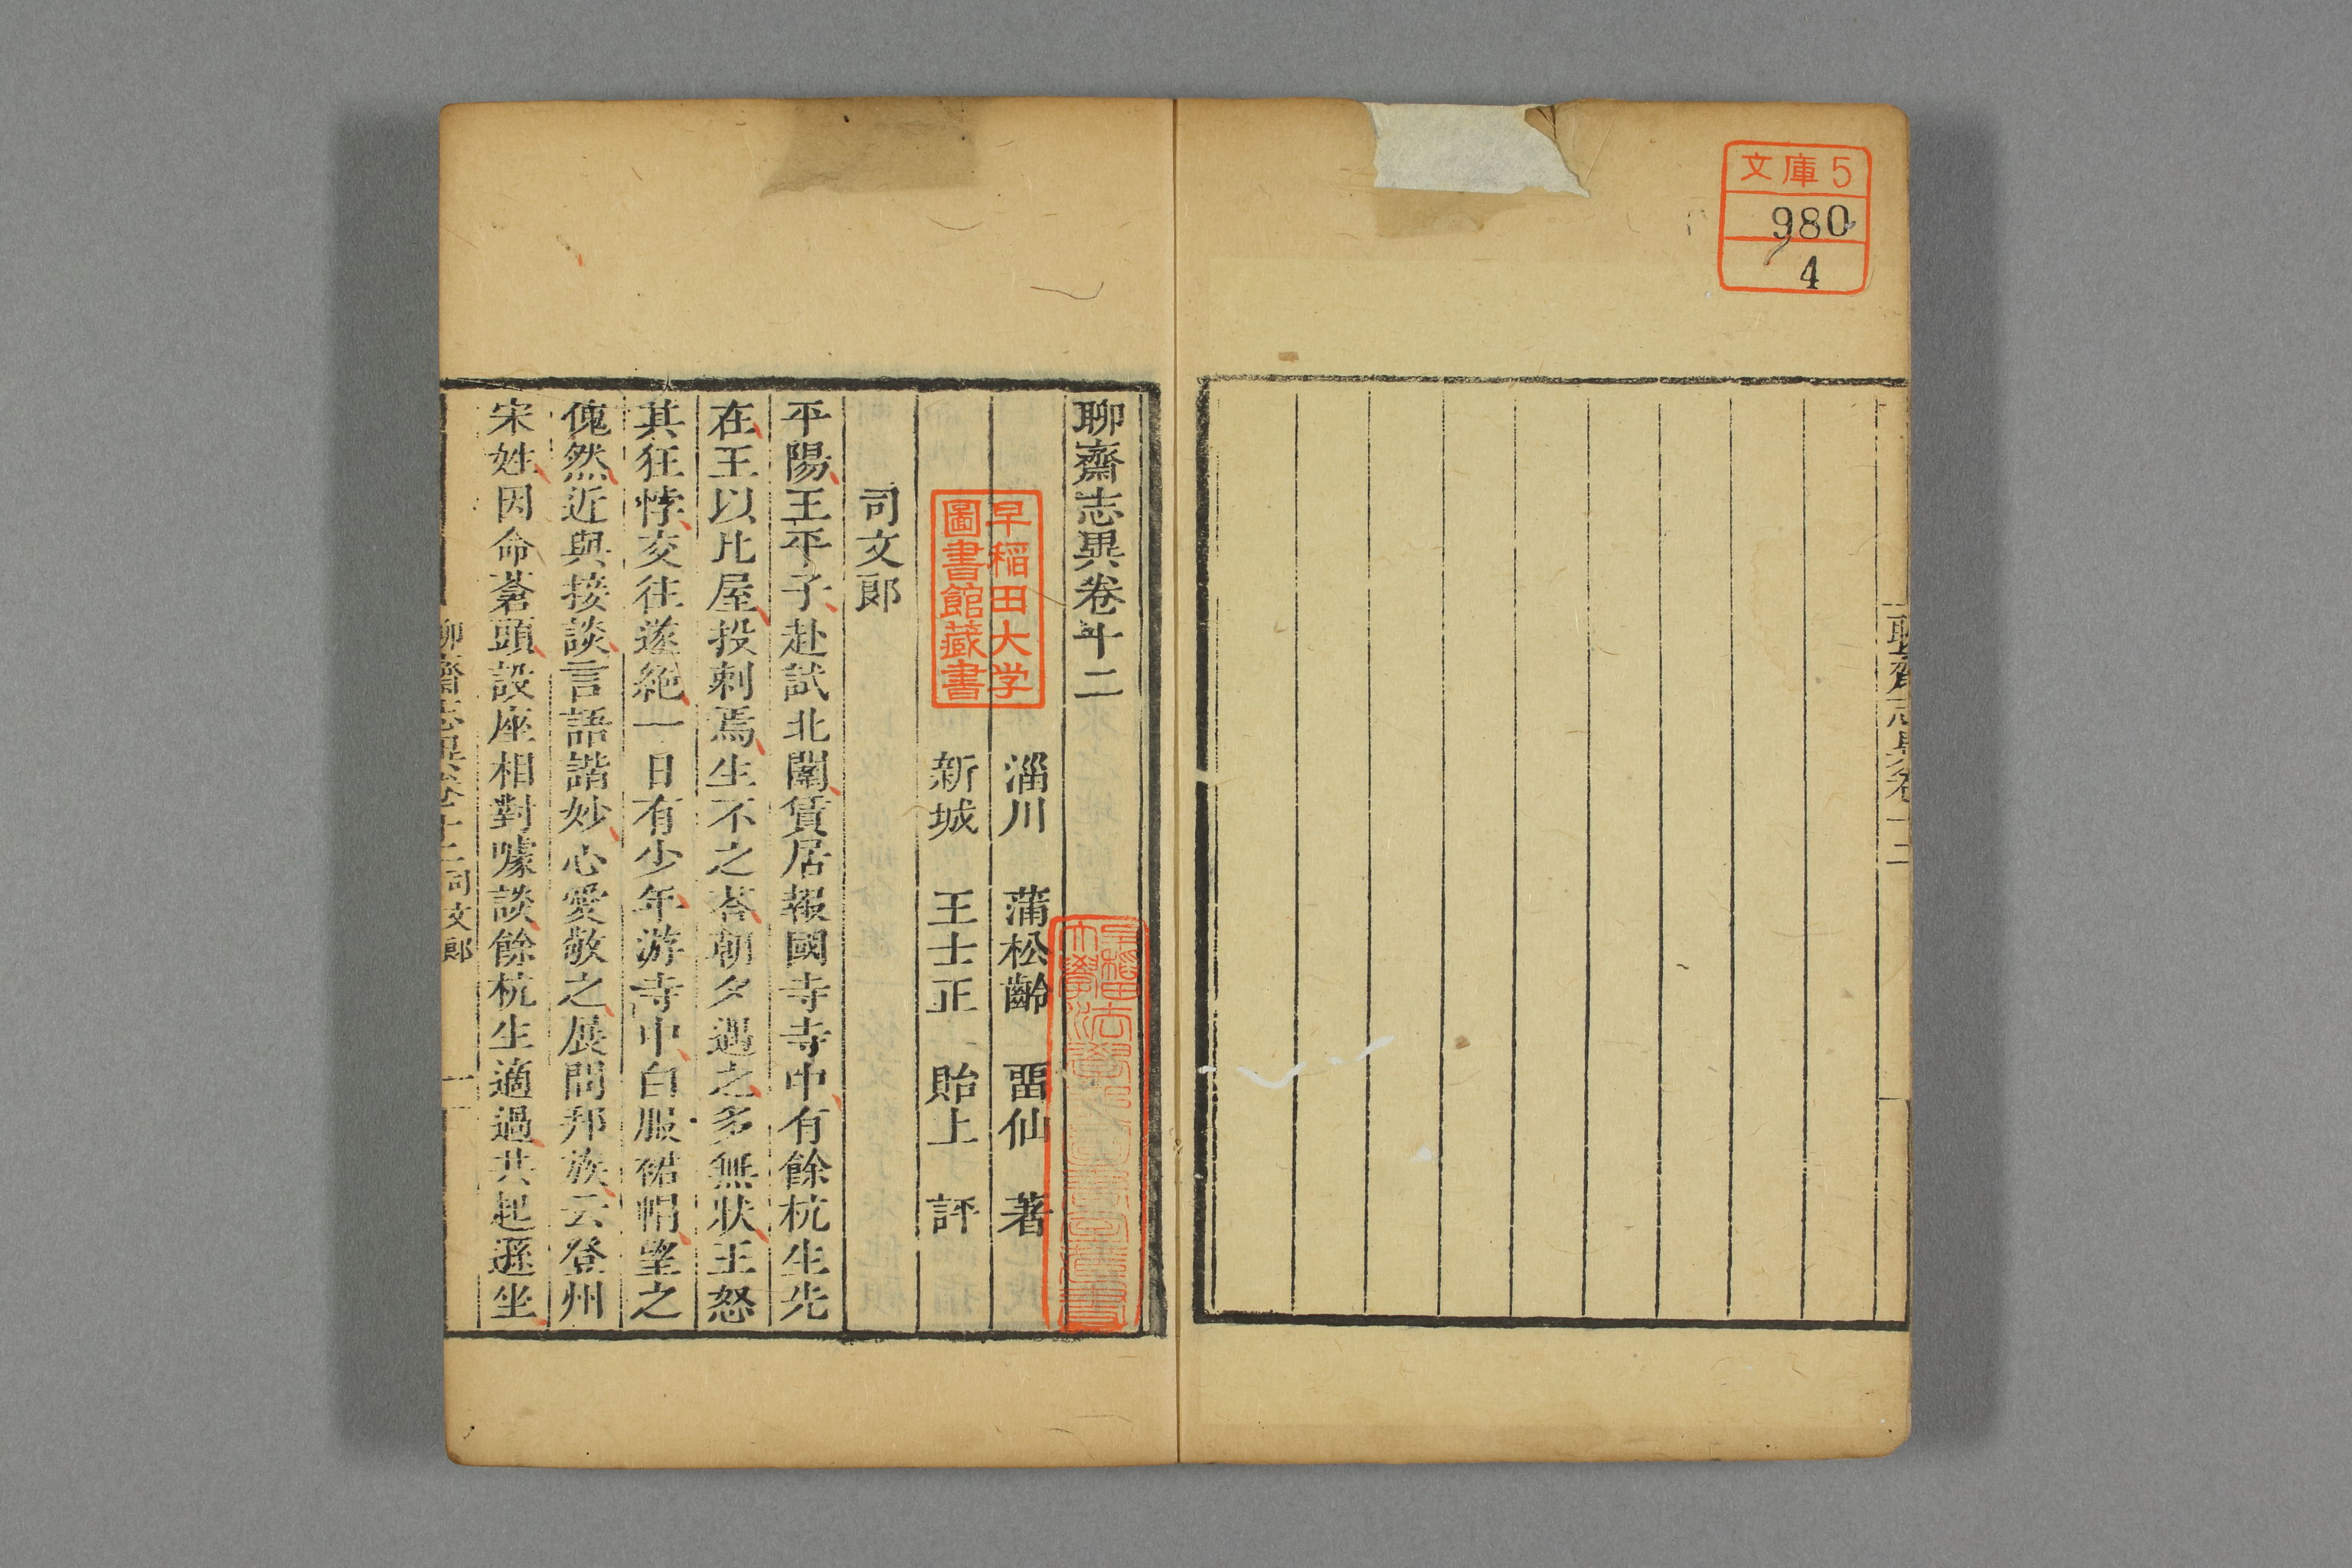 文庫5
980
4
聊齋志異卷十二
聊齋志異卷十二
淄川 蒲松齡 畱仙 著
新城 王士正 貽上 評
早稲田大学
圖書館藏書
司文郎
平陽王平子赴試北闈賃居報國寺寺中有餘杭生先
在王以比屋投刺焉生不之荅朝夕遇之多無狀王怒
其狂悖交往遂絕一日有少年游寺中白服裙帽望之
傀然近與接談言語諧妙心愛敬之展問邦族云登州
宋姓因命蒼頭設座相對噱談餘杭生適過共起遜坐
聊齋志異卷十二司文郎 一